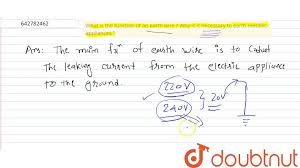 642782462
What is the function of an earth wire ? Why is it necessary to earth metallic appliances ?
Ans: The main fxⁿ of earth wire is to Conduct
the leaking current from the electric appliance
to the ground.
220V
240V
20V
doubtnut